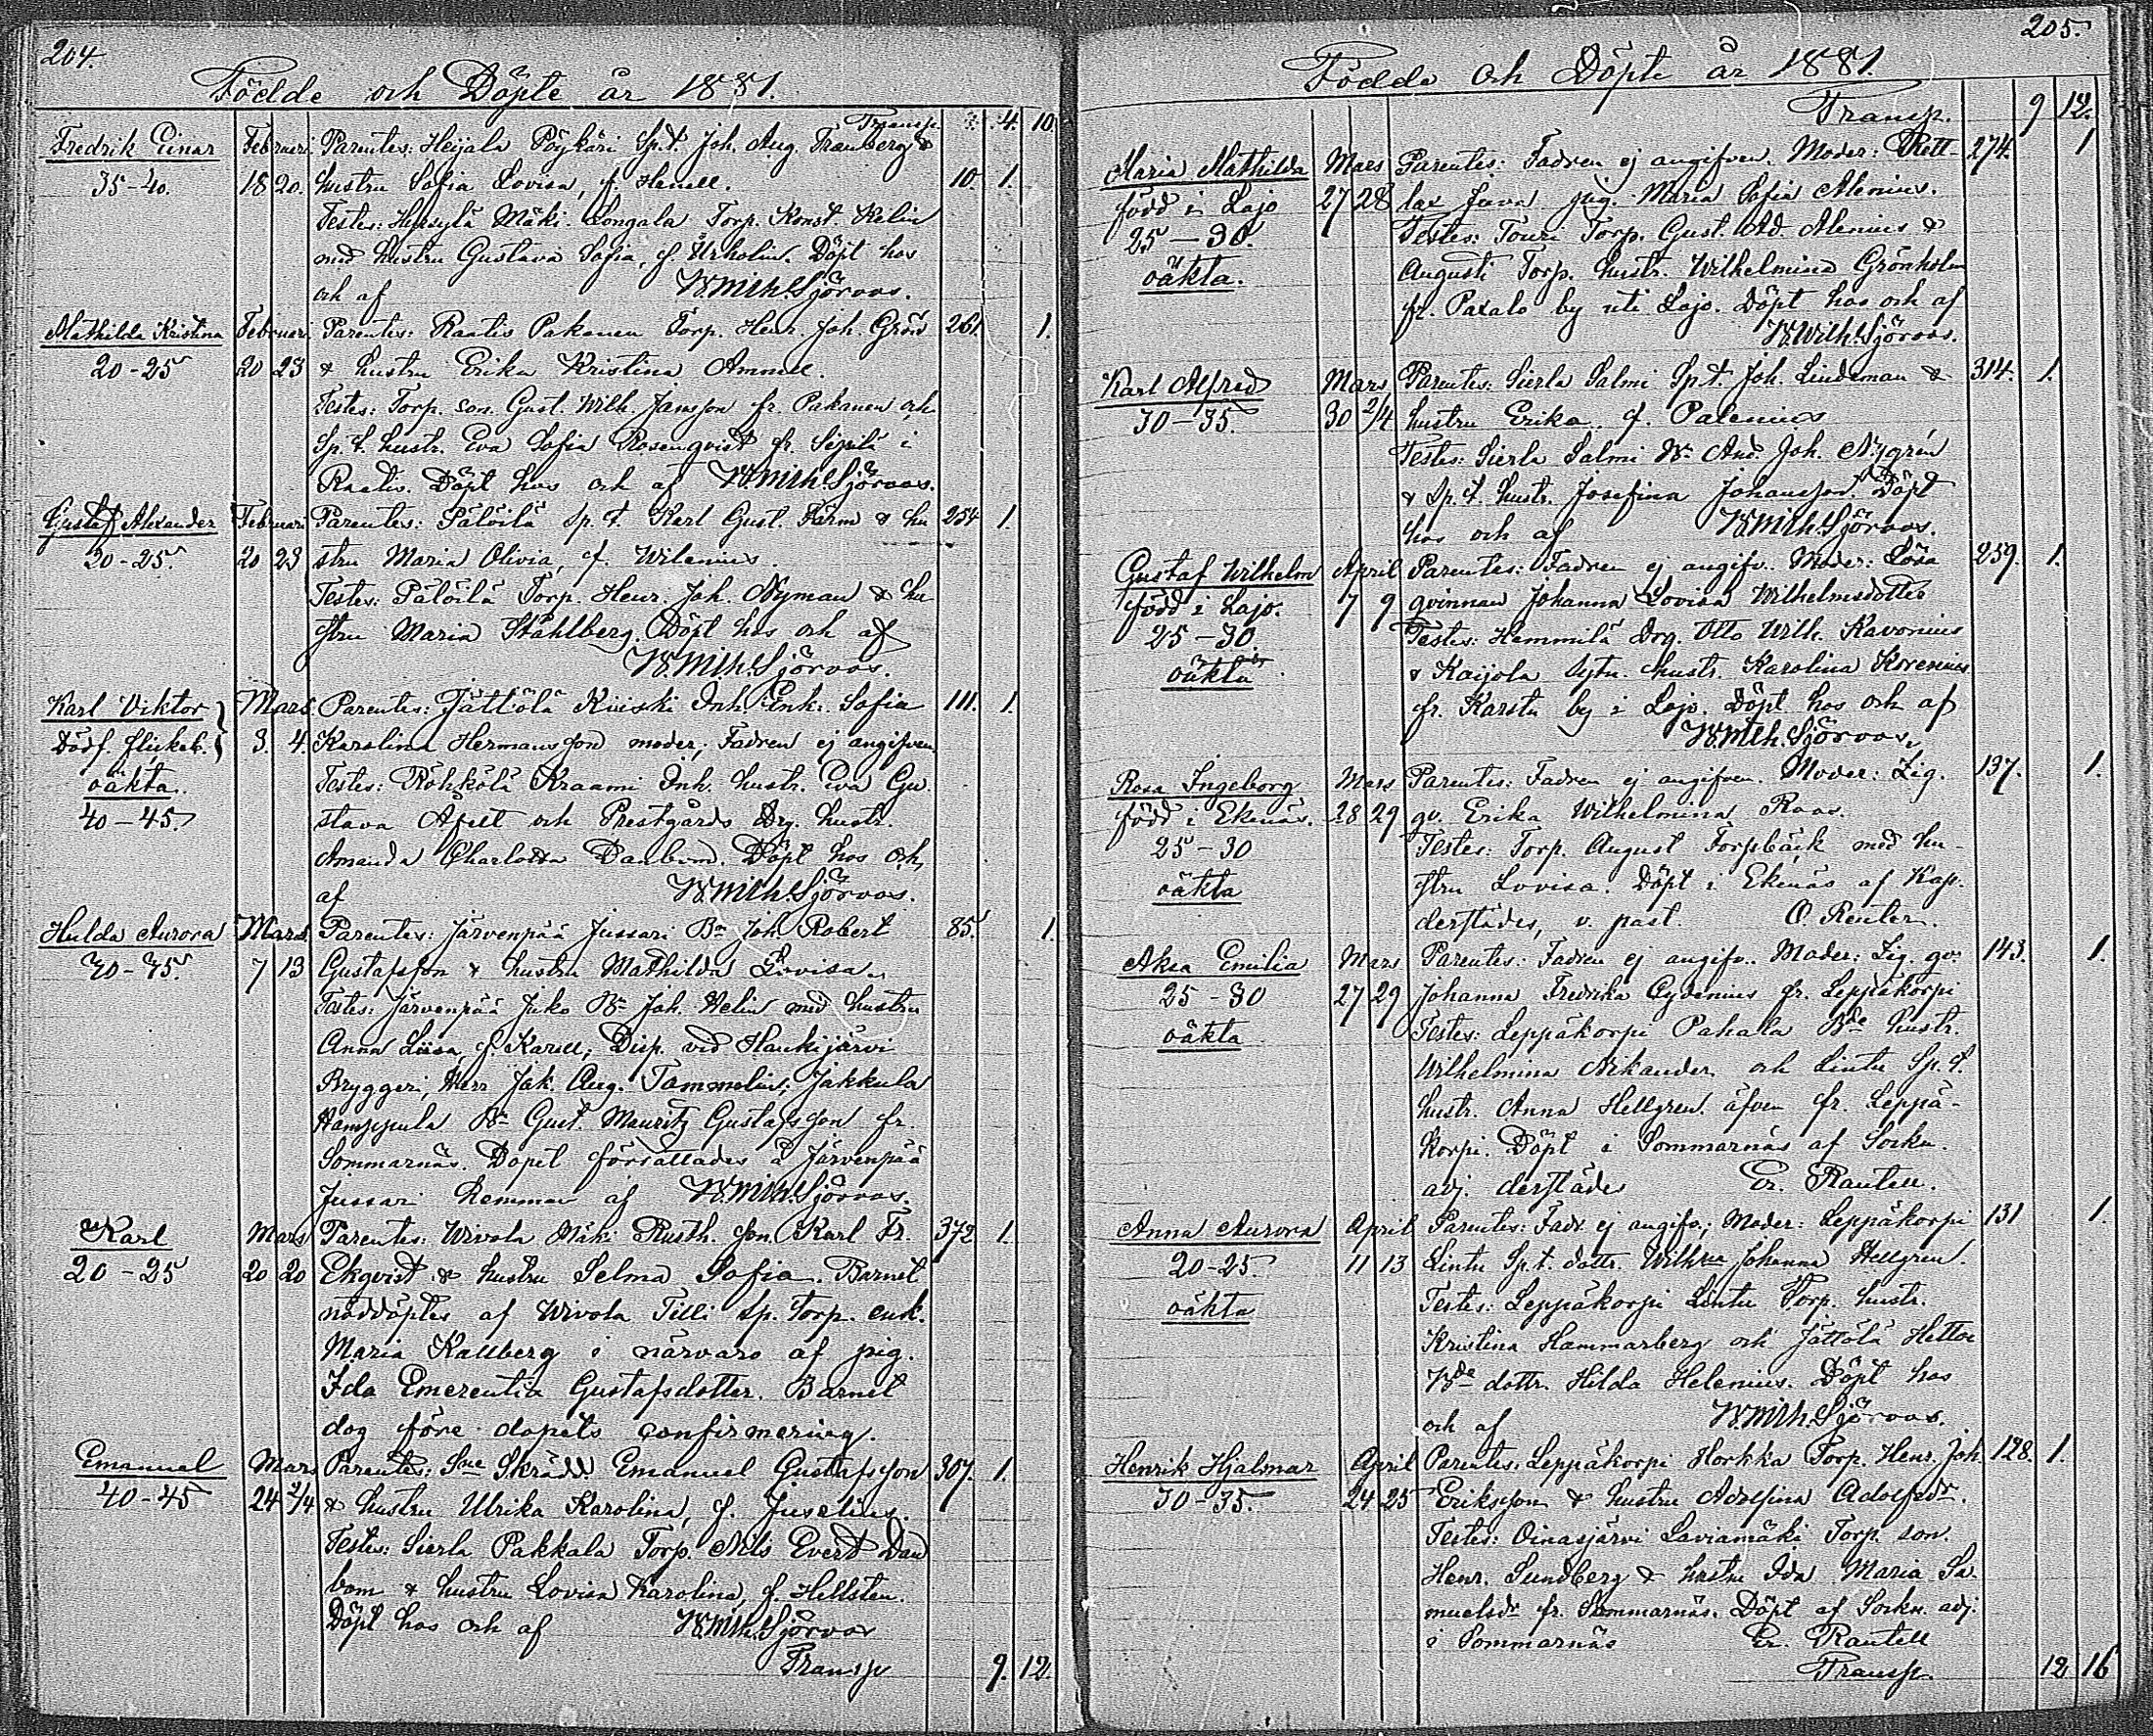 204.
Födde och Döpte år 1881.
Transp. 4. 10
Fredrik Einar Februari. Parentes: Heijala Pöykäri Sp.t. Joh. Aug. Tranberg &
35-40. 18 20. hustru Sofia Lovisa, f. Hanell. 10. 1.
Testes: Mäki Torp. Konst. Helin
med hustru Gustava Sofia, f. Urholin. Döpt hos
och af W.Wilh.Sjöroos.
Mathilda Kristina Februari. Parentes: Raatis Pakanen Torp. Henr. Joh. Grön 261. 1.
20-25 20 23 & hustru Erika Kristina Ammell.
Testes: Torp. son. Gust. Wilh. Jansson fr. Pakanen och
Sp.t. hustr. Eva Sofia Rosenqvist fr. Sipilä i
Raatis. Döpt hos och af W.Wilh.Sjöroos.
Gustaf Alexander Februari Parentes: Pälöilä Sp.t. Karl Gust. Färm & hu 254 1.
20-25. 20 23 stru Maria Olivia, f. Wilenius.
Testes: Pälöilä Torp. Henr. Joh. Nyman & hu
stru Maria Ståhlberg. Döpt hos och af
W.Wilh.Sjöroos.
Karl Viktor Mars. Parentes: Jättölä Kiiski Inh. Enk. Sofia 111. 1.
Dödf. flickeb. 3. 4. Karolina Hermansson moder; Fadren ej angifven.
oäkta. Testes: Röhkölä Kraami Inh. hustr. Eva Gu
40-45. stava Afelt och Prestgårds Drg. hustr.
Amanda Charlotta Danbom. Döpt hos och
af W.Wilh.Sjöroos.
Hulda Aurora Mars. Parentes: Järvenpää Jussari Bn Joh. Robert 85. 1.
30-35. 7 13 Gustafsson & hustru Mathilda Lovisa.
Testes: Järvenpää Juko Bn Joh. Helin med hustru
Anna Liisa, f. Karell; Disp. vid Haukijärvi
Bryggeri, Herr Jak. Aug. Tammelin; Jakkula
Hamppula Bn Gust. Mauritz Gustafsson fr.
Sommarnäs. Dopet förrättades å Järvenpää
Jussari hemman af W.Wilh.Sjöroos.
Karl Mars Parentes: Wivola Mäki Rusth. son. Karl Fr. 372 1.
20-25 20 20 Ekqvist & hustru Selma Sofia. Barnet
nöddöptes af Wivola Tilli Sp. torp. enk.
Maria Kallberg i närvaro af pig.
Ida Emerentia Gustafsdotter. Barnet
dog före dopets confirmering.
Emanuel Mars Parentes: Sne Skrädd. Emanuel Gustafsson 307. 1.
40-45 24 2/4 & hustru Ulrika Karolina, f. Juselius.
Testes: Sierla Pakkala Torp. Nils Evert Dan
bom & hustru Lovisa Karolina, f. Hellsten.
Döpt hos och af W.Wilh.Sjöroos
Transp 9. 12.
205.
Födde och Döpte år 1881.
Transp. 9 12.
Maria Mathilda Mars Parentes: Fadren ej angifven. Moder: Rett- 274. 1
född i Lojo 27 28 lax pig. Maria Sofia Alenius.
25-30. Testes: Touri Torp. Gust. Ad. Alenius &
oäkta. Augusti Torp. hustr. Wilhelmina Grönholm
fr. Paxalo by uti Lojo. Döpt hos och af
W.Wilh.Sjöroos.
Karl Alfred Mars Parentes: Sierla Salmi Sp.t. Joh. Lindeman & 314. 1.
30-35. 30 2/4 hustru Erika f. Palenius
Testes: Sierla Salmi Bn And. Joh. Nygrén
& Sp.t. hustr. Josefina Johansson. Döpt
hos och af W.Wilh.Sjöroos.
Gustaf Wilhelm April Parentes: Fadren ej angifv. Moder: Lösa 259. 1.
född i Lojo. 7 9 qvinnan Johanna Lovisa Wilhelmsdotter
25-30 Testes: Hemmilä Drg. Otto Wilh. Kavonius
oäkta & Kaijola hustr. Karolina Korenius
fr. Karstu by i Lojo. Döpt hos och af
W.Wilh.Sjöroos.
Rosa Ingeborg Mars Parentes: Fadren ej angifven. Moder: Lig. 137. 1.
född i Ekenäs. 28 29 qv. Erika Wilhelmina Roos.
25-30 Testes: Torp. August Torpbäck med hu-
oäkta stru Lovisa. Döpt i Ekenäs af Kap.
derstädes, v. past. O. Renter.
Aksa Emilia Mars Parentes: Fadren ej angifv. Moder: Lig. qv. 143. 1.
25-30 27 29 Johanna Fredrika Cydenius fr. Leppäkorpi
oäkta Testes: Leppäkorpi Pahala Bde hustr.
Wilhelmina Nikander och Lintu Sp.t.
hustr. Anna Hellgren, äfven fr. Leppä-
korpi. Döpt i Sommarnäs af Sockn.
adj. derstädes Er. Rantell.
Anna Aurora April Parentes: Fadr. ej angifv.; Moder: Leppäkorpi 131 1.
20-25. 11 13 Lintu Sp.t. dottr. Johanna Hellgren.
oäkta Testes: Leppäkorpi Lintu Torp. hustr.
Kristina Hammarberg och Jättölä
Bde dottr. Hilda Helenius. Döpt hos
och af W.Wilh.Sjöroos.
Henrik Hjalmar April Parentes: Leppäkorpi Horkka Torp. Henr. Joh. 128. 1.
30-35. 24 25 Eriksson & hustru Adolfina Adolfsdr.
Testes: Oinasjärvi Laviamäki Torp. son.
Henr. Sundberg & hustru Ida Maria Sa
muelsdr fr. Sommarnäs. Döpt af Sockn. adj.
i Sommarnäs Er. Rantell
Transp. 12 16